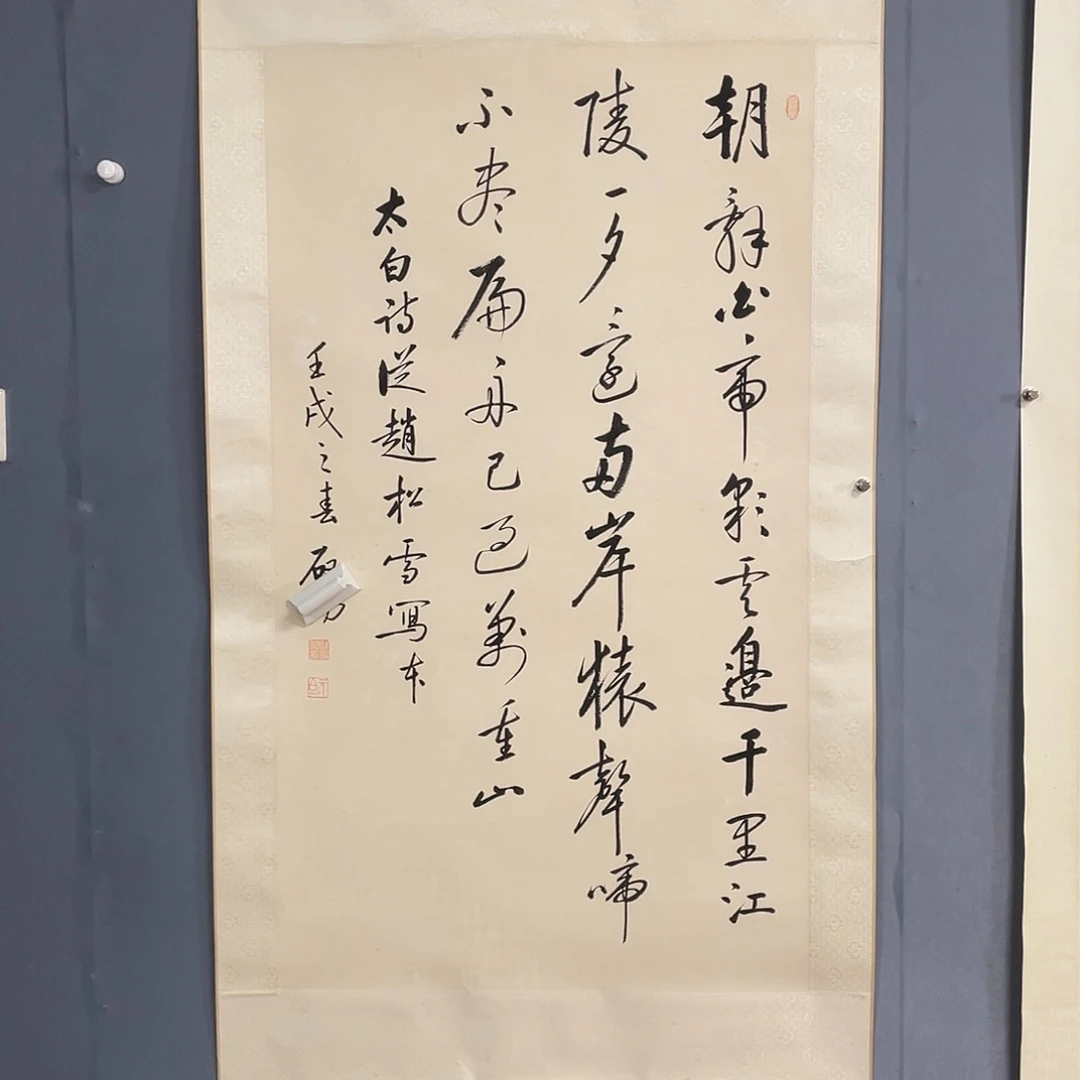 朝辭白帝彩雲邊千里江
陵一夕還兩岸猿聲啼
不盡扁舟已過萬重山
太白詩從趙松雪寫本
壬戌之春 启功